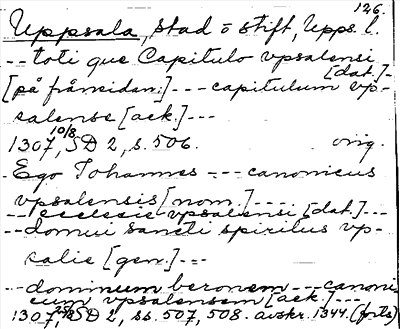 126.
Uppsala, stad o stift, Upps. l.
-- toti que Capitulo vpsalensi [dat.]-
[på frånsidan:]--- capitulum vp-
salense [ack.]---
1307 10/8, SD 2, s. 506. orig.
-Ego Johannes --- canonicus
vpsalensis [nom.]---
-- ecclesie vpsalensi [dat.]---
-- domui sancti spiritus vp-
salie [gen.]---
-- dominum beronem --- canoni-
cum vpsalensem [ack.]---
1307, SD 2, ss. 507, 508. avskr. 1344. (forts)